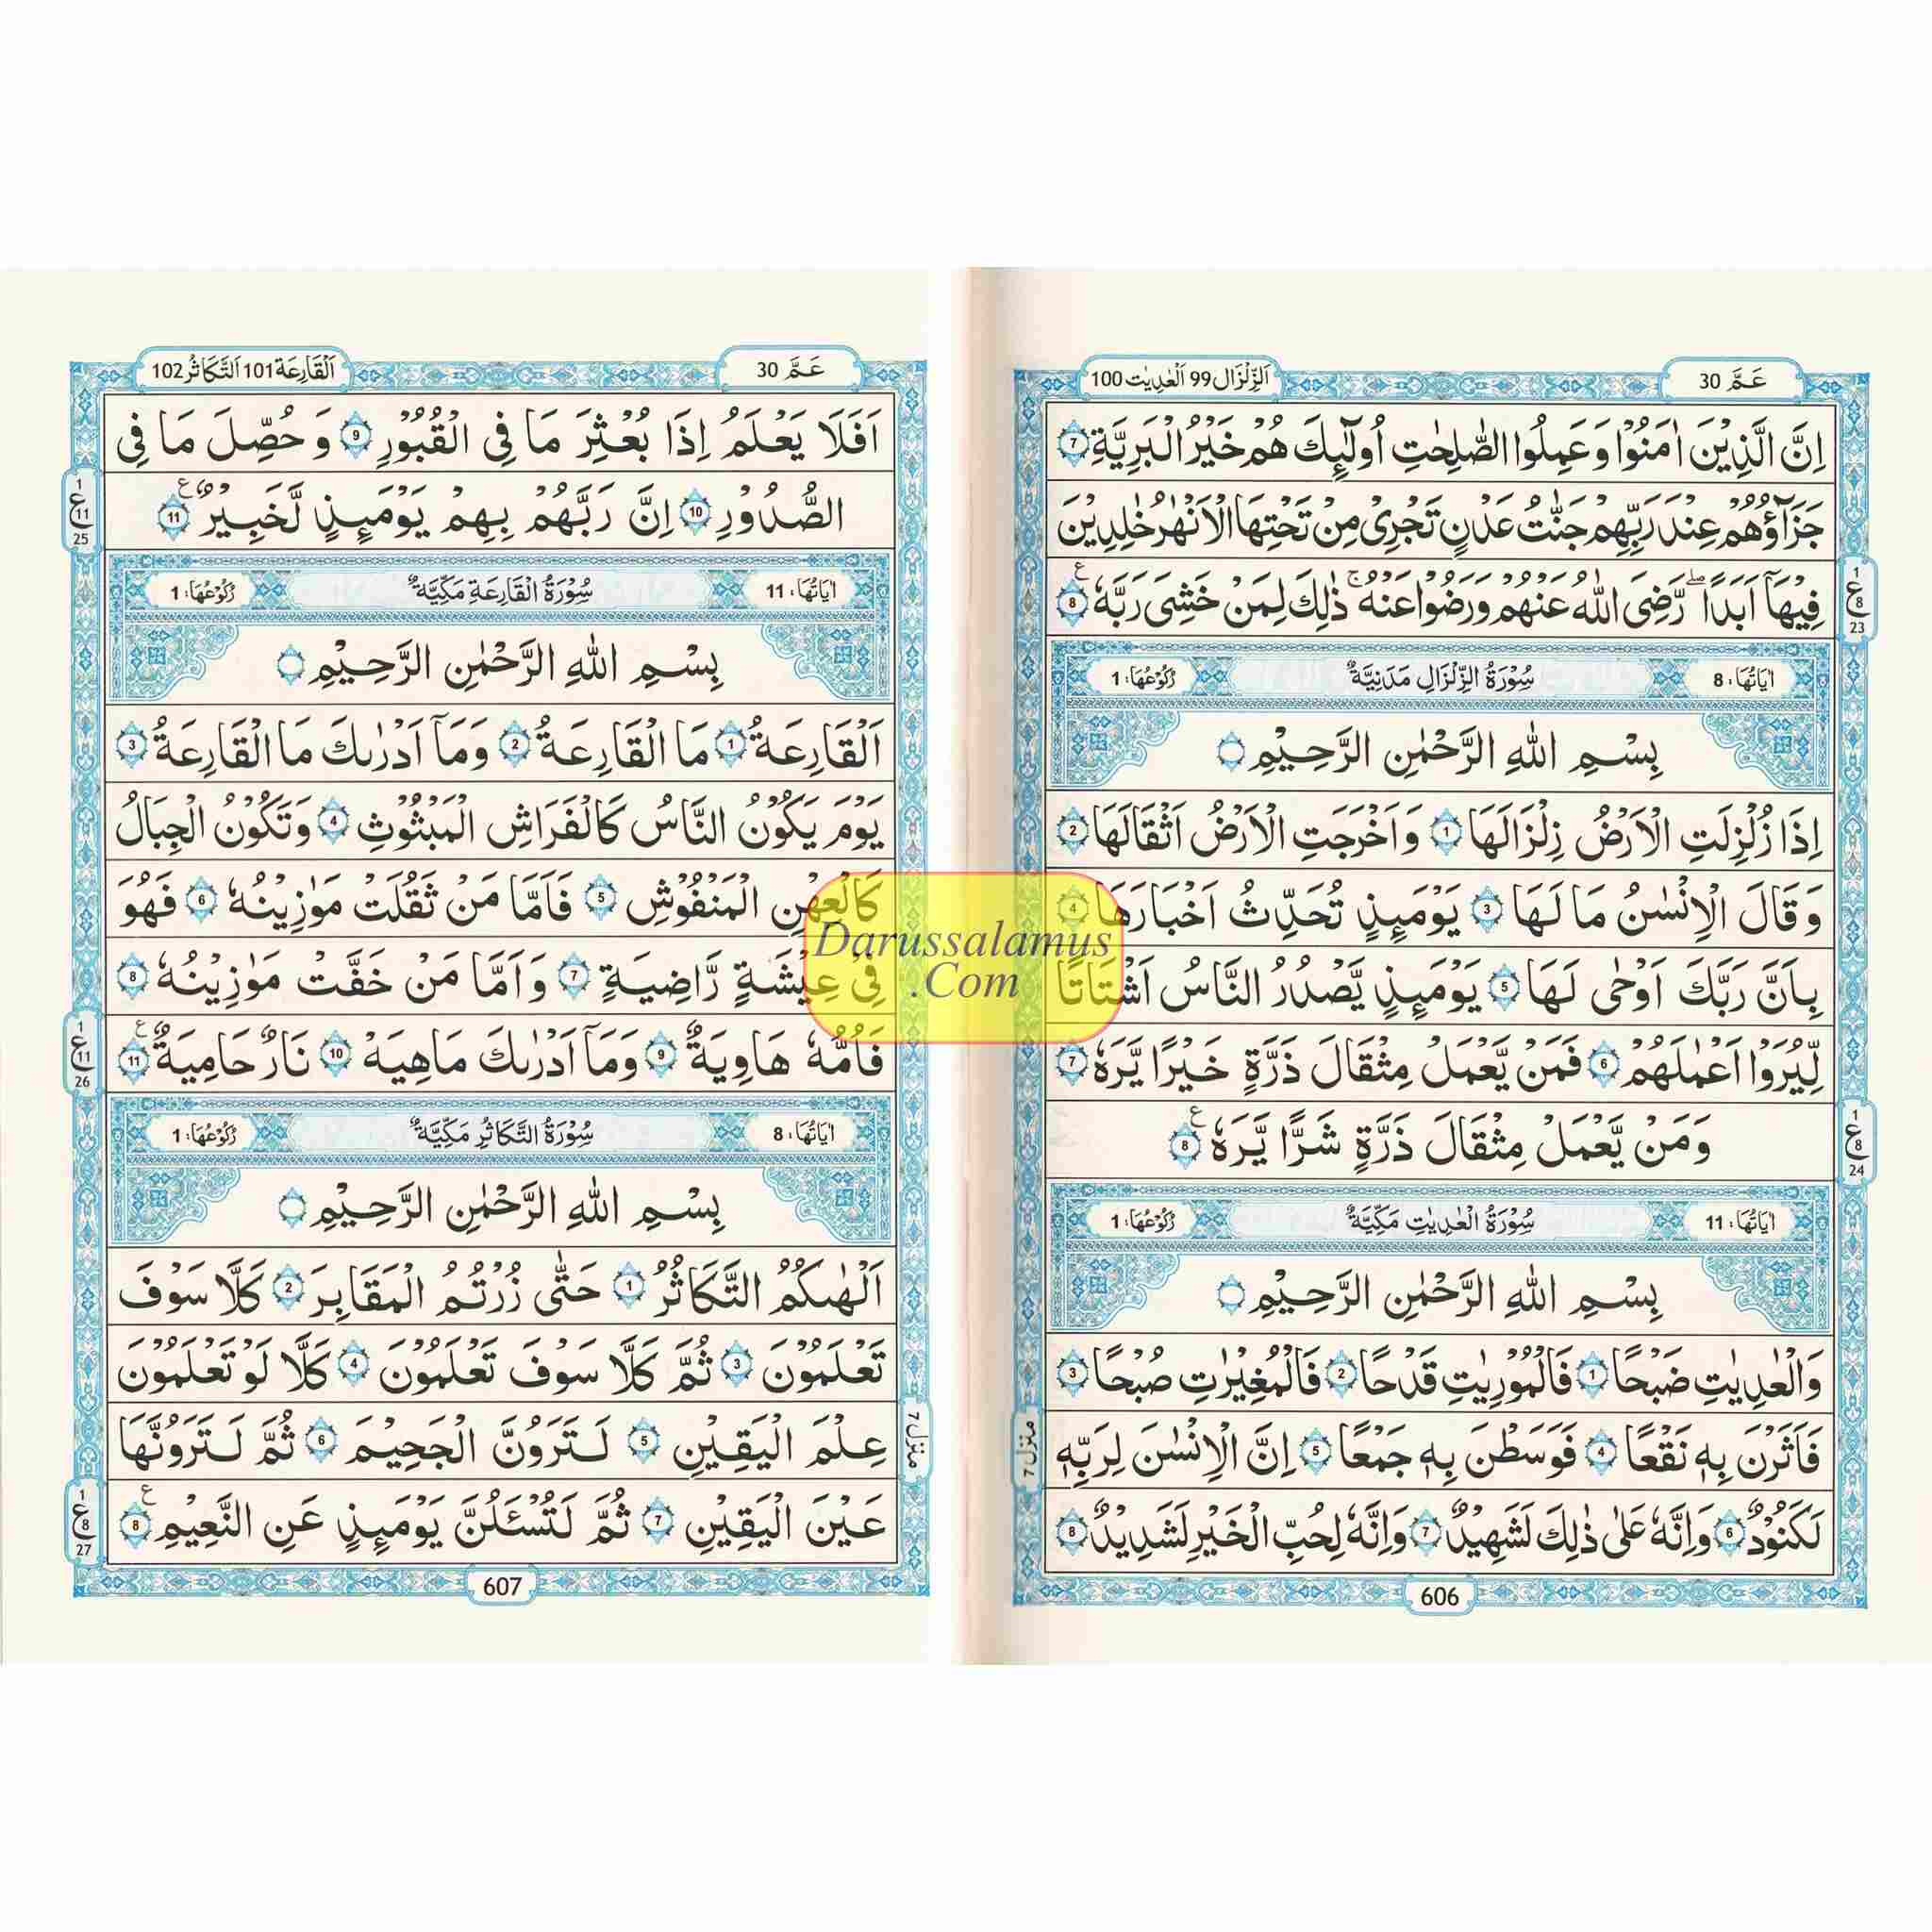 عَمَّ 30
اَلزِّلْزَال 99 اَلْعٰدِيٰت 100
اِنَّ الَّذِيْنَ اٰمَنُوْا وَ عَمِلُوا الصّٰلِحٰتِ اُولٰٓئِكَ هُمْ خَيْرُ الْبَرِيَّةِ 7
جَزَآؤُهُمْ عِنْدَ رَبِّهِمْ جَنّٰتُ عَدْنٍ تَجْرِيْ مِنْ تَحْتِهَا الْاَنْهٰرُ خٰلِدِيْنَ
فِيْهَآ اَبَدًا ۖ رَّضِيَ اللّٰهُ عَنْهُمْ وَرَضُوْا عَنْهُ ۚ ذٰلِكَ لِمَنْ خَشِيَ رَبَّهٗ ع 8
1 ع 8 23
اٰيَاتُهَا: 8 سُوْرَةُ الزِّلْزَالِ مَدَنِيَّةٌ رُكُوْعُهَا: 1
بِسْمِ اللّٰهِ الرَّحْمٰنِ الرَّحِيْمِ
اِذَا زُلْزِلَتِ الْاَرْضُ زِلْزَالَهَا 1 وَ اَخْرَجَتِ الْاَرْضُ اَثْقَالَهَا 2
وَ قَالَ الْاِنْسٰنُ مَا لَهَا 3 يَوْمَىِٕذٍ تُحَدِّثُ اَخْبَارَهَا 4
بِاَنَّ رَبَّكَ اَوْحٰى لَهَا 5 يَوْمَىِٕذٍ يَّصْدُرُ النَّاسُ اَشْتَاتًا
لِّيُرَوْا اَعْمٰلَهُمْ 6 فَمَنْ يَّعْمَلْ مِثْقَالَ ذَرَّةٍ خَيْرًا يَّرَهٗ 7
وَ مَنْ يَّعْمَلْ مِثْقَالَ ذَرَّةٍ شَرًّا يَّرَهٗ ع 8
1 ع 8 24
اٰيَاتُهَا: 11 سُوْرَةُ الْعٰدِيٰتِ مَكِّيَّةٌ رُكُوْعُهَا: 1
بِسْمِ اللّٰهِ الرَّحْمٰنِ الرَّحِيْمِ
وَالْعٰدِيٰتِ ضَبْحًا 1 فَالْمُوْرِيٰتِ قَدْحًا 2 فَالْمُغِيْرٰتِ صُبْحًا 3
فَاَثَرْنَ بِهٖ نَقْعًا 4 فَوَسَطْنَ بِهٖ جَمْعًا 5 اِنَّ الْاِنْسٰنَ لِرَبِّهٖ
لَكَنُوْدٌ 6 وَ اِنَّهٗ عَلٰى ذٰلِكَ لَشَهِيْدٌ 7 وَ اِنَّهٗ لِحُبِّ الْخَيْرِ لَشَدِيْدٌ 8
منزل 7
606
عَمَّ 30
اَلْقَارِعَة 101 اَلتَّكَاثُر 102
اَفَلَا يَعْلَمُ اِذَا بُعْثِرَ مَا فِي الْقُبُوْرِ 9 وَ حُصِّلَ مَا فِي
الصُّدُوْرِ 10 اِنَّ رَبَّهُمْ بِهِمْ يَوْمَىِٕذٍ لَّخَبِيْرٌ ع 11
1 ع 11 25
اٰيَاتُهَا: 11 سُوْرَةُ الْقَارِعَةِ مَكِّيَّةٌ رُكُوْعُهَا: 1
بِسْمِ اللّٰهِ الرَّحْمٰنِ الرَّحِيْمِ
اَلْقَارِعَةُ 1 مَا الْقَارِعَةُ 2 وَمَآ اَدْرٰىكَ مَا الْقَارِعَةُ 3
يَوْمَ يَكُوْنُ النَّاسُ كَالْفَرَاشِ الْمَبْثُوْثِ 4 وَتَكُوْنُ الْجِبَالُ
كَالْعِهْنِ الْمَنْفُوْشِ 5 فَاَمَّا مَنْ ثَقُلَتْ مَوٰزِيْنُهٗ 6 فَهُوَ
فِيْ عِيْشَةٍ رَّاضِيَةٍ 7 وَ اَمَّا مَنْ خَفَّتْ مَوٰزِيْنُهٗ 8
فَاُمُّهٗ هَاوِيَةٌ 9 وَمَآ اَدْرٰىكَ مَاهِيَهْ 10 نَارٌ حَامِيَةٌ ع 11
1 ع 11 26
اٰيَاتُهَا: 8 سُوْرَةُ التَّكَاثُرِ مَكِّيَّةٌ رُكُوْعُهَا: 1
بِسْمِ اللّٰهِ الرَّحْمٰنِ الرَّحِيْمِ
اَلْهٰىكُمُ التَّكَاثُرُ 1 حَتّٰى زُرْتُمُ الْمَقَابِرَ 2 كَلَّا سَوْفَ
تَعْلَمُوْنَ 3 ثُمَّ كَلَّا سَوْفَ تَعْلَمُوْنَ 4 كَلَّا لَوْ تَعْلَمُوْنَ
عِلْمَ الْيَقِيْنِ 5 لَتَرَوُنَّ الْجَحِيْمَ 6 ثُمَّ لَتَرَوُنَّهَا
عَيْنَ الْيَقِيْنِ 7 ثُمَّ لَتُسْـَٔلُنَّ يَوْمَىِٕذٍ عَنِ النَّعِيْمِ ع 8
1 ع 8 27
منزل 7
607
Darussalamus
.Com